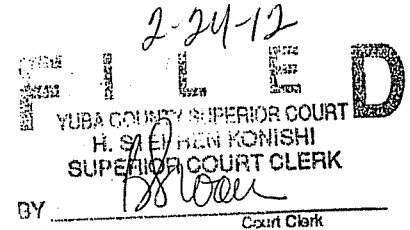 2-24-12
FILED
YUBA COUNTY SUPERIOR COURT
H. STEPHEN KONISHI
SUPERIOR COURT CLERK
BY
Court Clerk